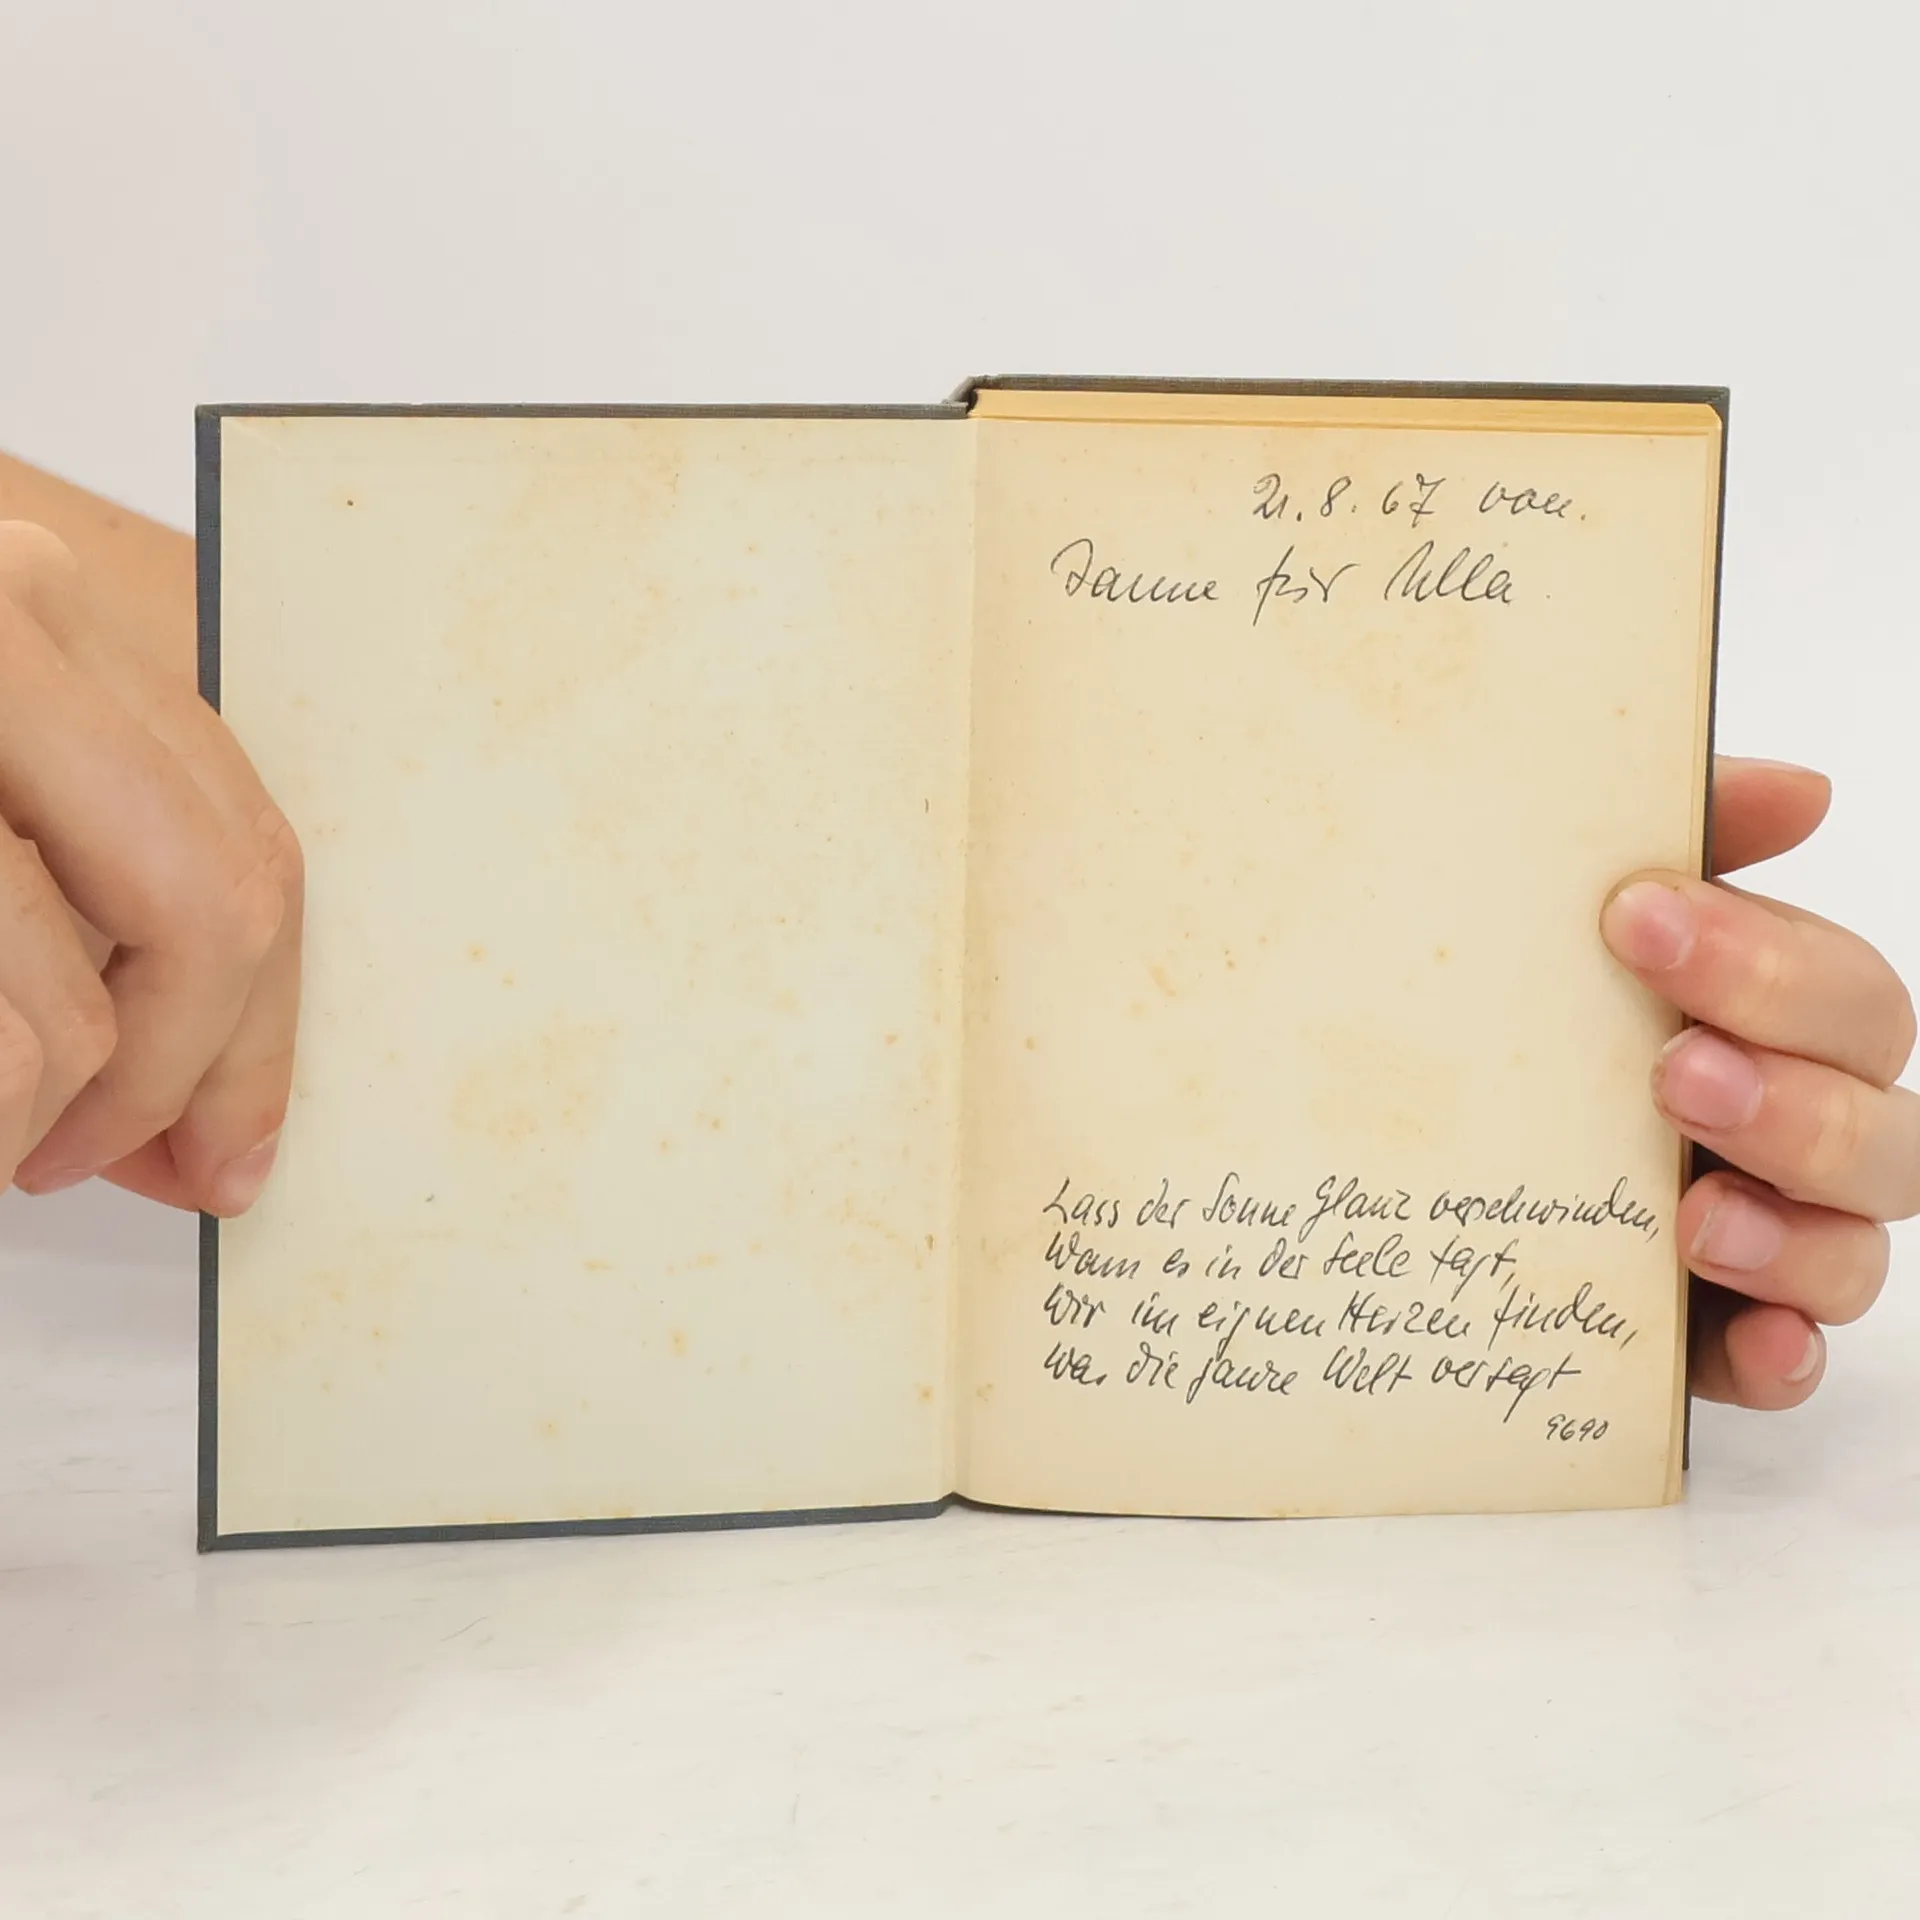 21. 8. 67 von.
für Ulla.
Lass der Sonne Glanz verschwinden,
Wann es in der Seele tagt,
Wir im eignen Herzen finden,
was die ganze Welt versagt